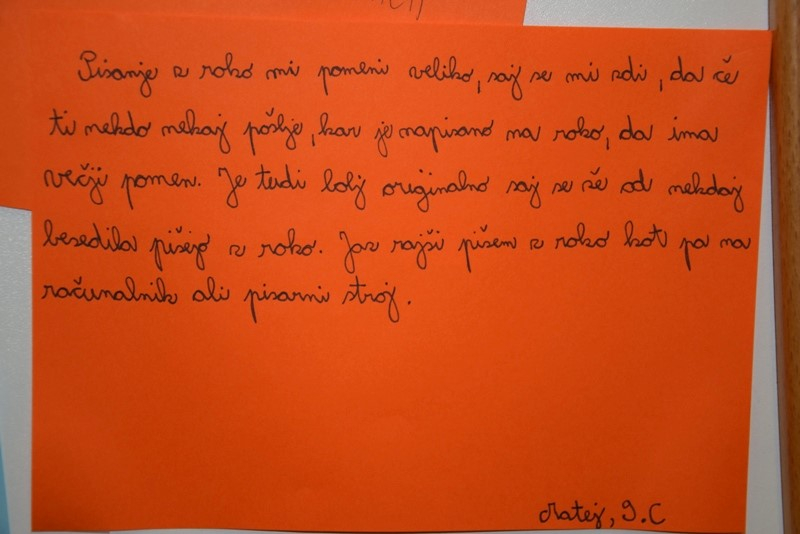 Pisanje z roko mi pomeni veliko, saj se mi zdi, da če
ti nekdo nekaj pošlje, kar je napisano na roko, da ima
večji pomen. Je tudi bolj originalno saj se že od nekdaj
besedila pišejo z roko. Jaz rajši pišem z roko kot pa na
računalnik ali pisarni stroj.
Matej, 9.C